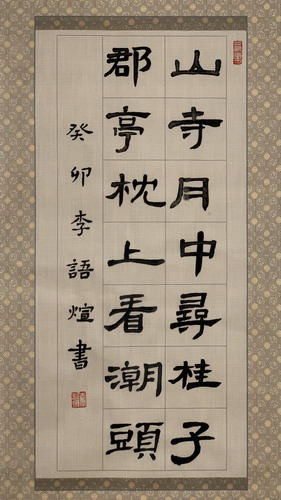 山寺月中尋桂子
郡亭枕上看潮頭
癸卯李語煊書